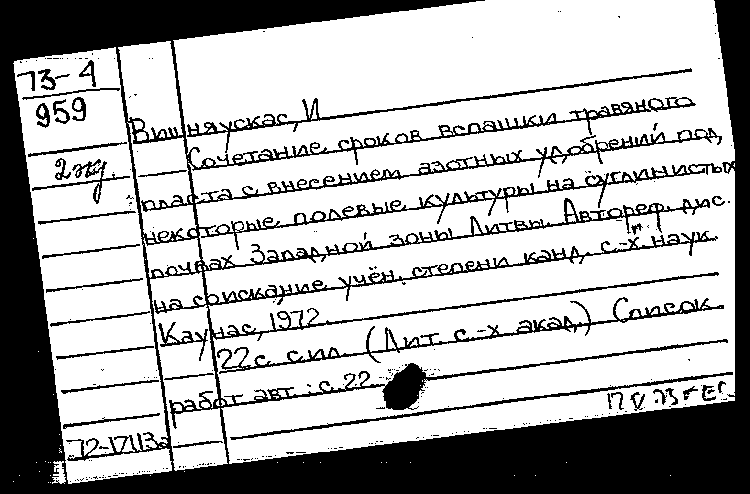 73-4
959
2 экз.
Вишняускас, И
Сочетание сроков вспашки травяного
пласта с внесением азотных удобрений под
некоторые полевые культуры на суглинистых
почвах Западной зоны Литвы. Автореф. дис.
на соискание учён. степени канд. с.-х. наук.
Каунас, 1972.
22 с. с ил. (Лит. с.-х акад.) Список
работ авт.: с. 22
72-17113а